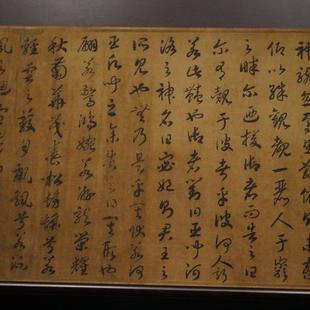 神駭忽焉思散俯則未察
仰以殊觀覩一麗人于巖
之畔尔迺援御者而告之曰
尔有覿于彼者乎彼何人斯
若此豔也御者對曰臣聞河
洛之神名曰宓妃則君王之
所見也無乃是乎其狀若何
臣願聞之余告之曰其形也
翩若驚鴻婉若遊龍榮曜
秋菊華茂春松髣髴兮若
輕雲之蔽月飄颻兮若流
風之迴雪